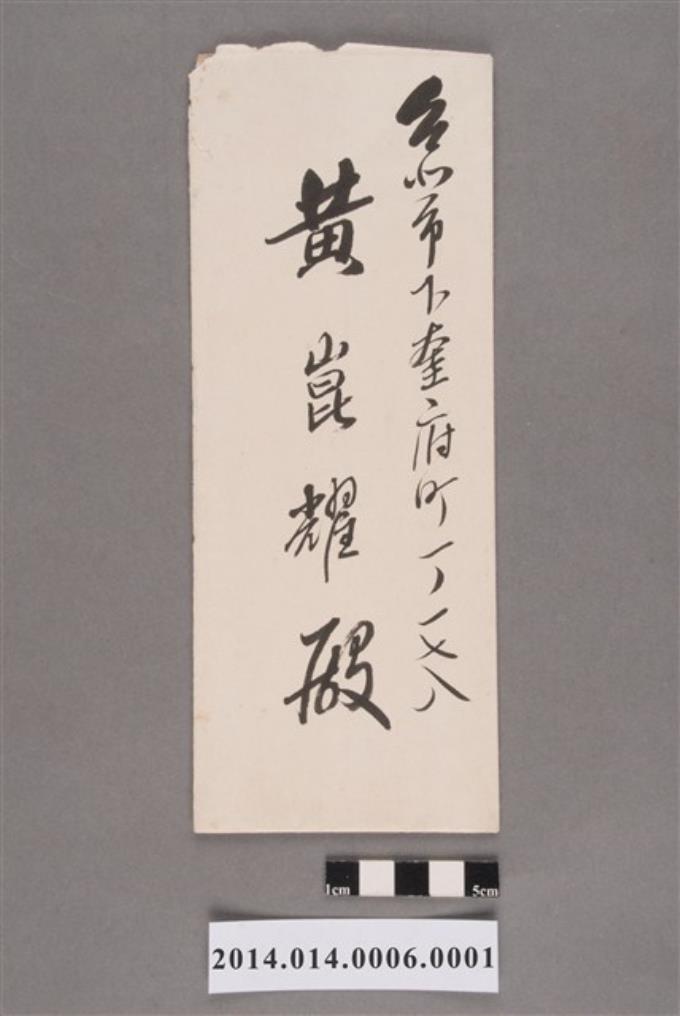 台北市下奎府町一ノ一七八
黄崑耀殿
1cm 5cm
2014.014.0006.0001